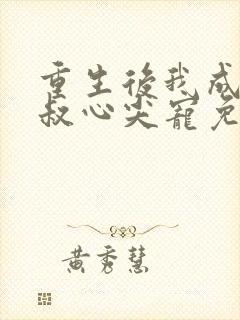 重生後我成
叔心尖寵免
黃秀慧